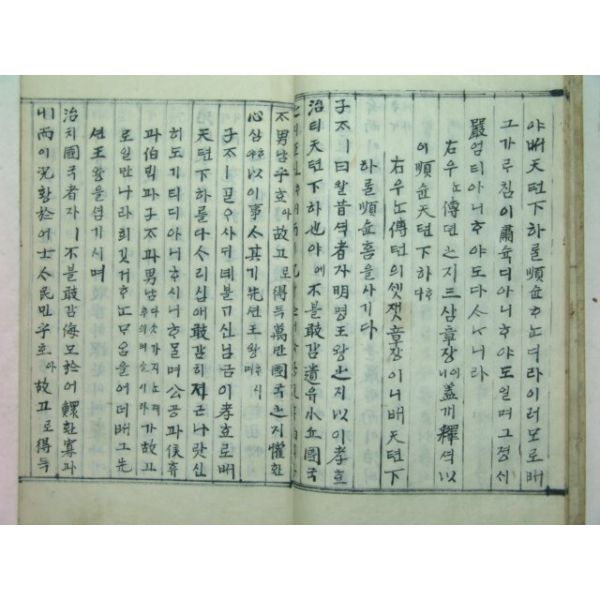 야배天텬下하ᄅᆞᆯ順슌ᄒᆞᄂᆞ뎌라이러모로배
그가ᄅᆞ침이肅슉디아니ᄒᆞ야도일며그졍ᄉᆡ
嚴엄티아니ᄒᆞ야도다ᄉᆞᄂᆞ니라
右우ᄂᆞᆫ傳뎐之지三삼章장이니蓋개釋셕以
이順슌天텬下하다
右우ᄂᆞᆫ傳뎐의셋잿章장이니배天텬下
하ᄅᆞᆯ順슌홈을사기다
子ᄌᆞㅣ曰왈昔셕者쟈明명王왕之지以이孝효
治티天텬下하也야에不블敢감遺유小쇼國국
男남乎호아故고로得득萬만國국之지懽환
心심ᄒᆞ야以이事ᄉᆞ其기先션王왕ᄒᆞ시며
子ᄌᆞㅣᄀᆞᆯᄋᆞ샤ᄃᆡ녜ᄇᆞᆯ기신님금이孝효로배
天텬下하ᄅᆞᆯ다ᄉᆞ리심애敢감히져근나랏신
하도기티디아니ᄒᆞ시니ᄒᆞ믈며公공과侯후
과伯ᄇᆡᆨ과子ᄌᆞ과男남가故고
로일만나라희깃거ᄒᆞᄂᆞᆫᄆᆞᄋᆞᆷ을어더배그先
션王왕을셤기시며
治치國국者쟈ㅣ不불敢감侮모於어鰥환寡과
ㅣ而이況황於어士ᄉᆞ民민乎호아故고로得득